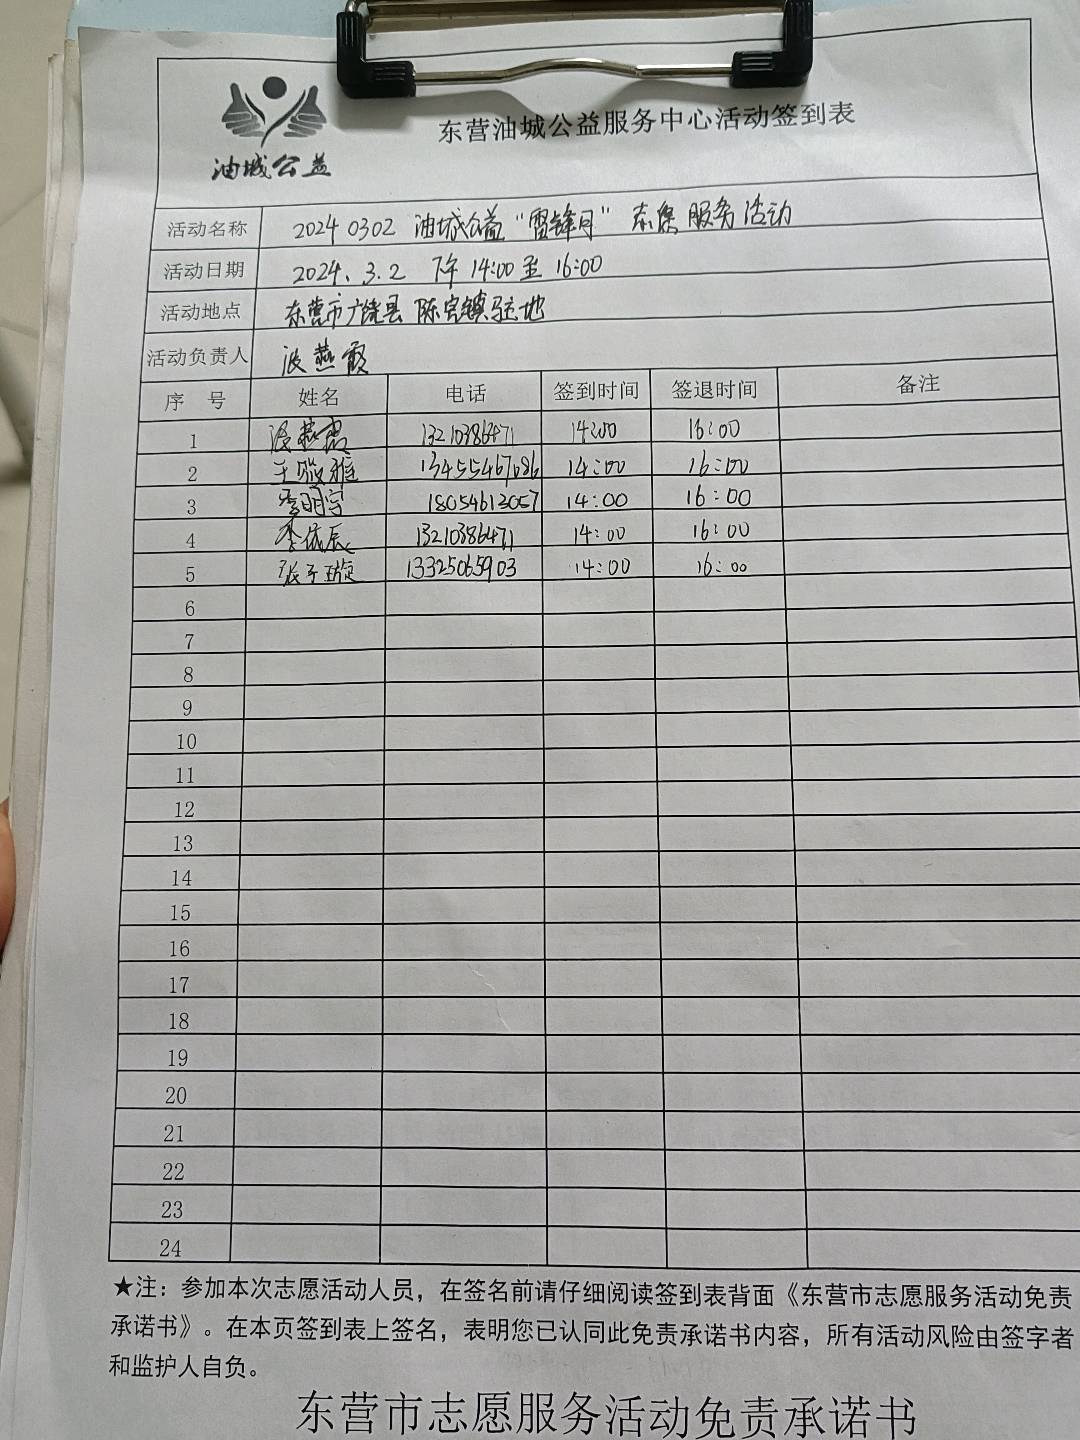 油城公益
东营油城公益服务中心活动签到表
活动名称 20240302 油城公益"雷锋月"志愿服务活动
活动日期 2024.3.2 下午 14:00至 16:00
活动地点 东营市广饶县 陈官镇驻地
活动负责人 燕霞
序 号 姓名 电话 签到时间 签退时间 备注
1 燕霞 13210386471 14:00 16:00
2 王骏雅 13455467686 14:00 16:00
3 李明宇 18054613057 14:00 16:00
4 李依辰 13210386471 14:00 16:00
5 张子璇 13325065903 14:00 16:00
6
7
8
9
10
11
12
13
14
15
16
17
18
19
20
21
22
23
24
★注：参加本次志愿活动人员，在签名前请仔细阅读签到表背面《东营市志愿服务活动免责
承诺书》。在本页签到表上签名，表明您已认同此免责承诺书内容，所有活动风险由签字者
和监护人自负。
东营市志愿服务活动免责承诺书